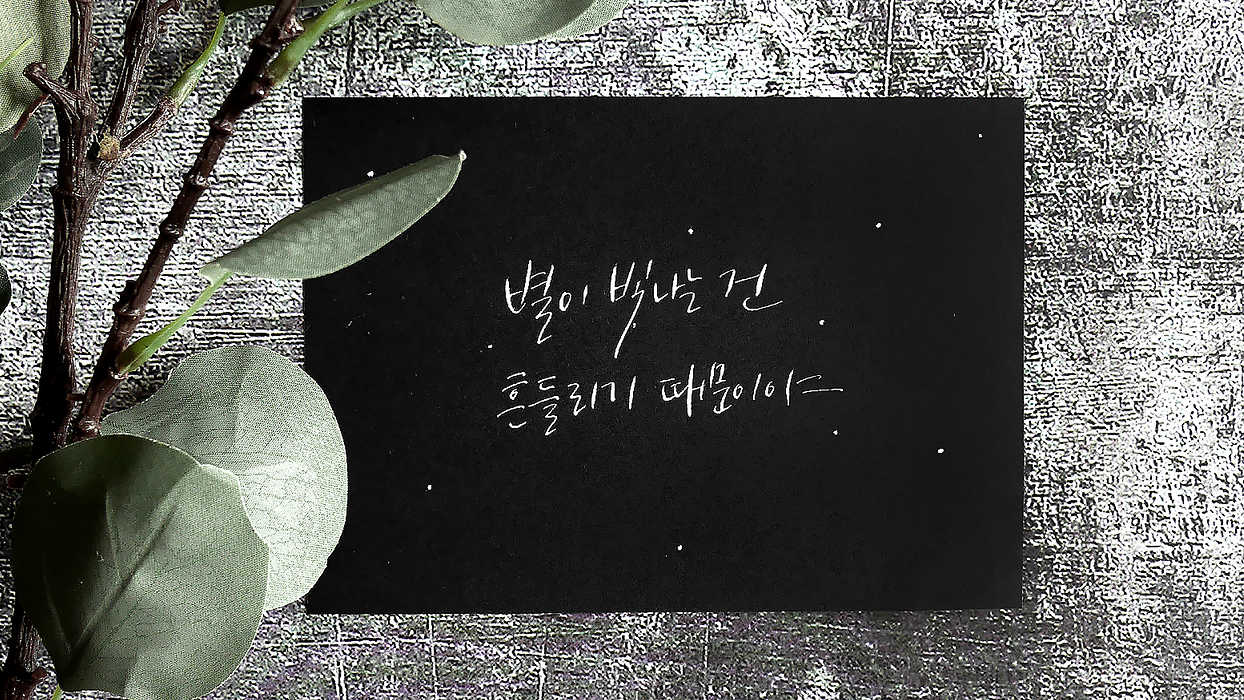 별이 빛나는 건
흔들리기 때문이야